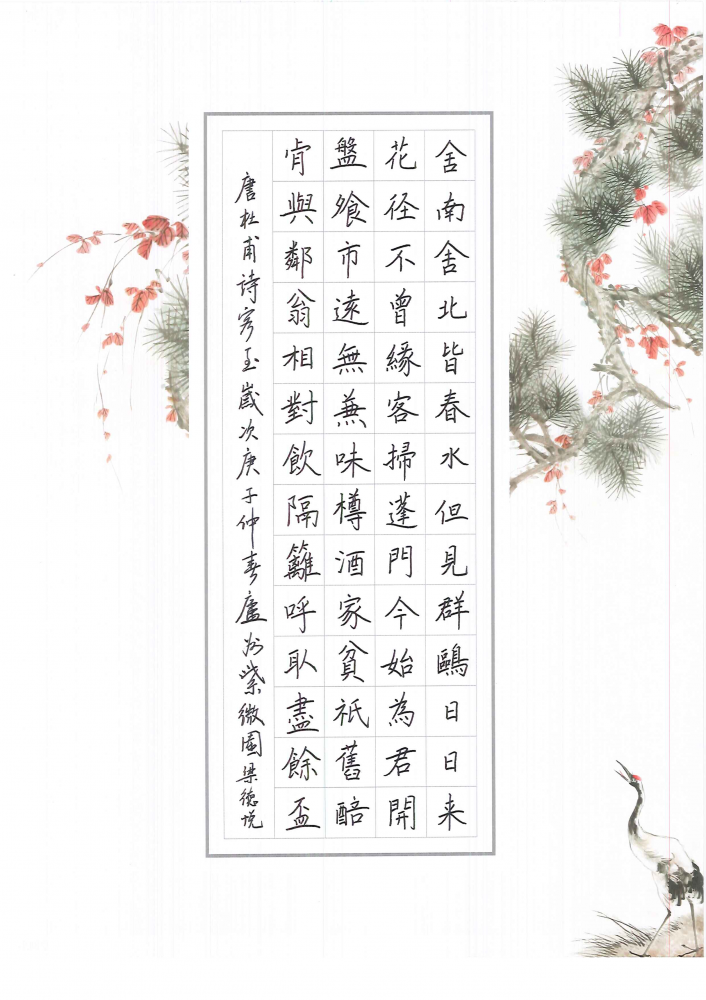 舍南舍北皆春水但見群鷗日日来
花径不曾緣客掃蓬門今始為君開
盤飧市遠無蒹味樽酒家貧祇舊醅
肯與鄰翁相對飲隔籬呼取盡餘盃
唐杜甫詩客至歲次庚子仲春廬州紫微園梁德悦